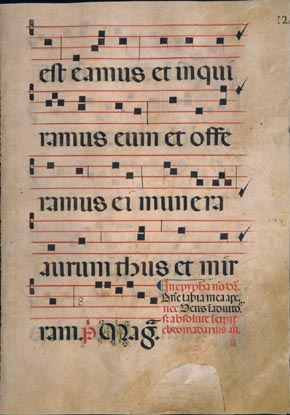 12
est eamus et inqui
ramus eum et offe
ramus ei munera
aurum thus et mir
ram. p̄. Mag̃.
In epypha
labia mea ape
Deus
absolute